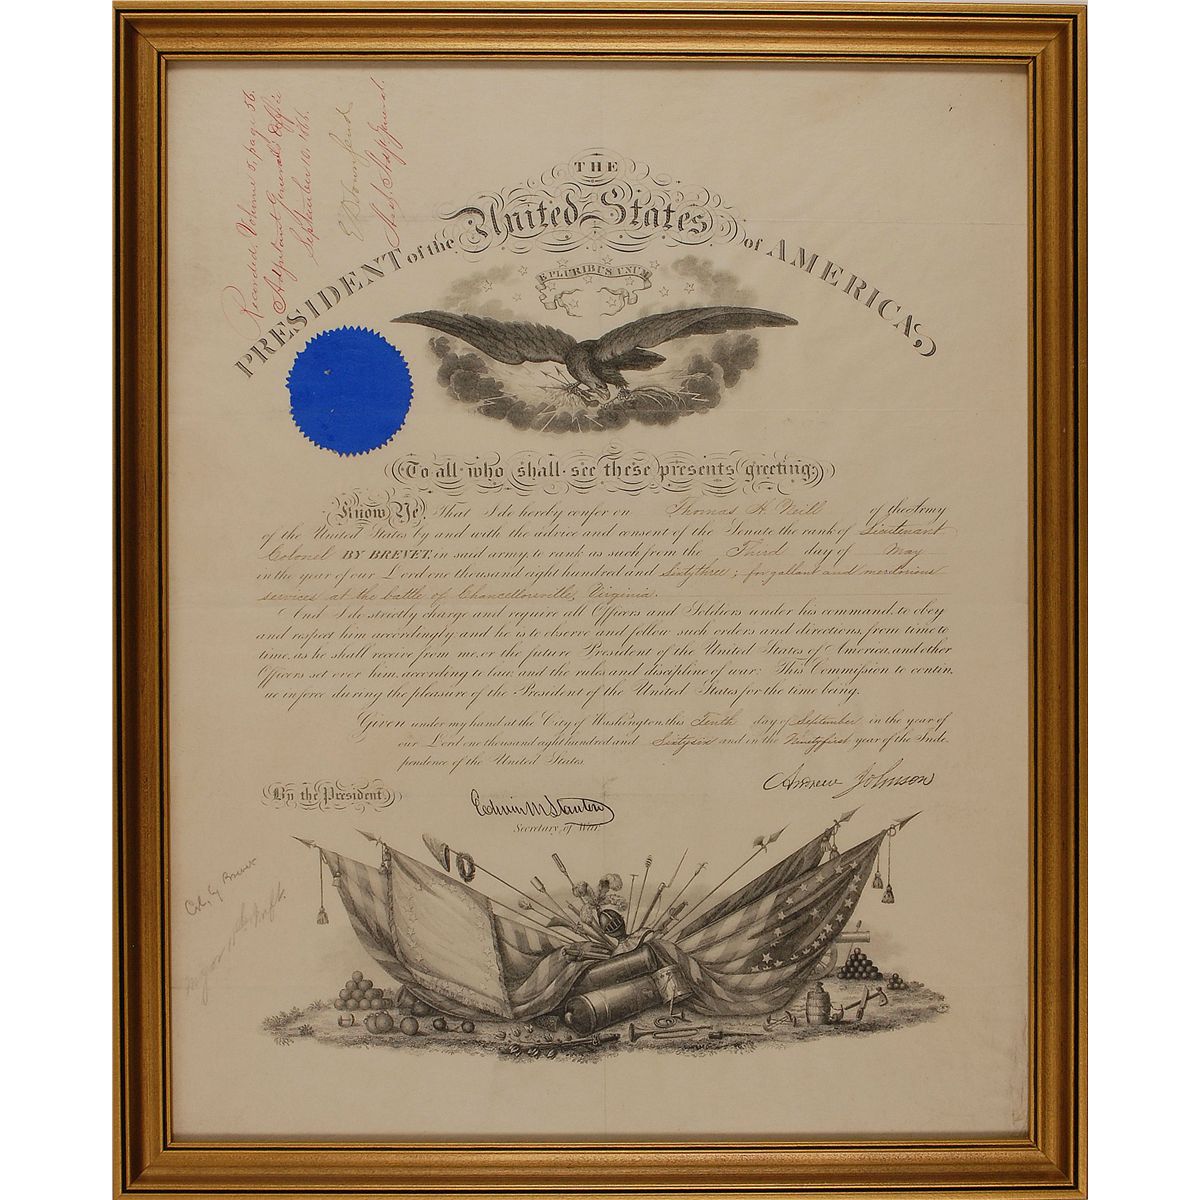 Recorded, Volume 5, page 56.
Adjutant General's Office
September 10, 1866.
E D Townsend
Asst. Adjt. General.
THE
United States
PRESIDENT of the of AMERICA,
E PLURIBUS UNUM
To all who shall see these presents greeting:
Know Ye, That I do hereby confer on Thomas H. Neill of the Army
of the United States by and with the advice and consent of the Senate the rank of Lieutenant
Colonel BY BREVET, in said army, to rank as such from the Third day of May
in the year of our Lord one thousand eight hundred and Sixty three; for gallant and meritorious
services at the battle of Chancellorsville, Virginia.
And I do strictly charge and require all Officers and Soldiers under his command, to obey
and respect him accordingly: and he is to observe and follow such orders and directions, from time to
time, as he shall receive from me, or the future President of the United States of America, and other
Officers set over him, according to law, and the rules and discipline of war: This Commission to contin
ue in force during the pleasure of the President of the United States for the time being.
Given under my hand at the City of Washington, this Tenth day of September in the year of
our Lord one thousand eight hundred and Sixty six and in the Ninety first year of the Inde
pendence of the United States.
Andrew Johnson
By the President,
Edwin M Stanton
Secretary of War.
Col, by Brevet
Major